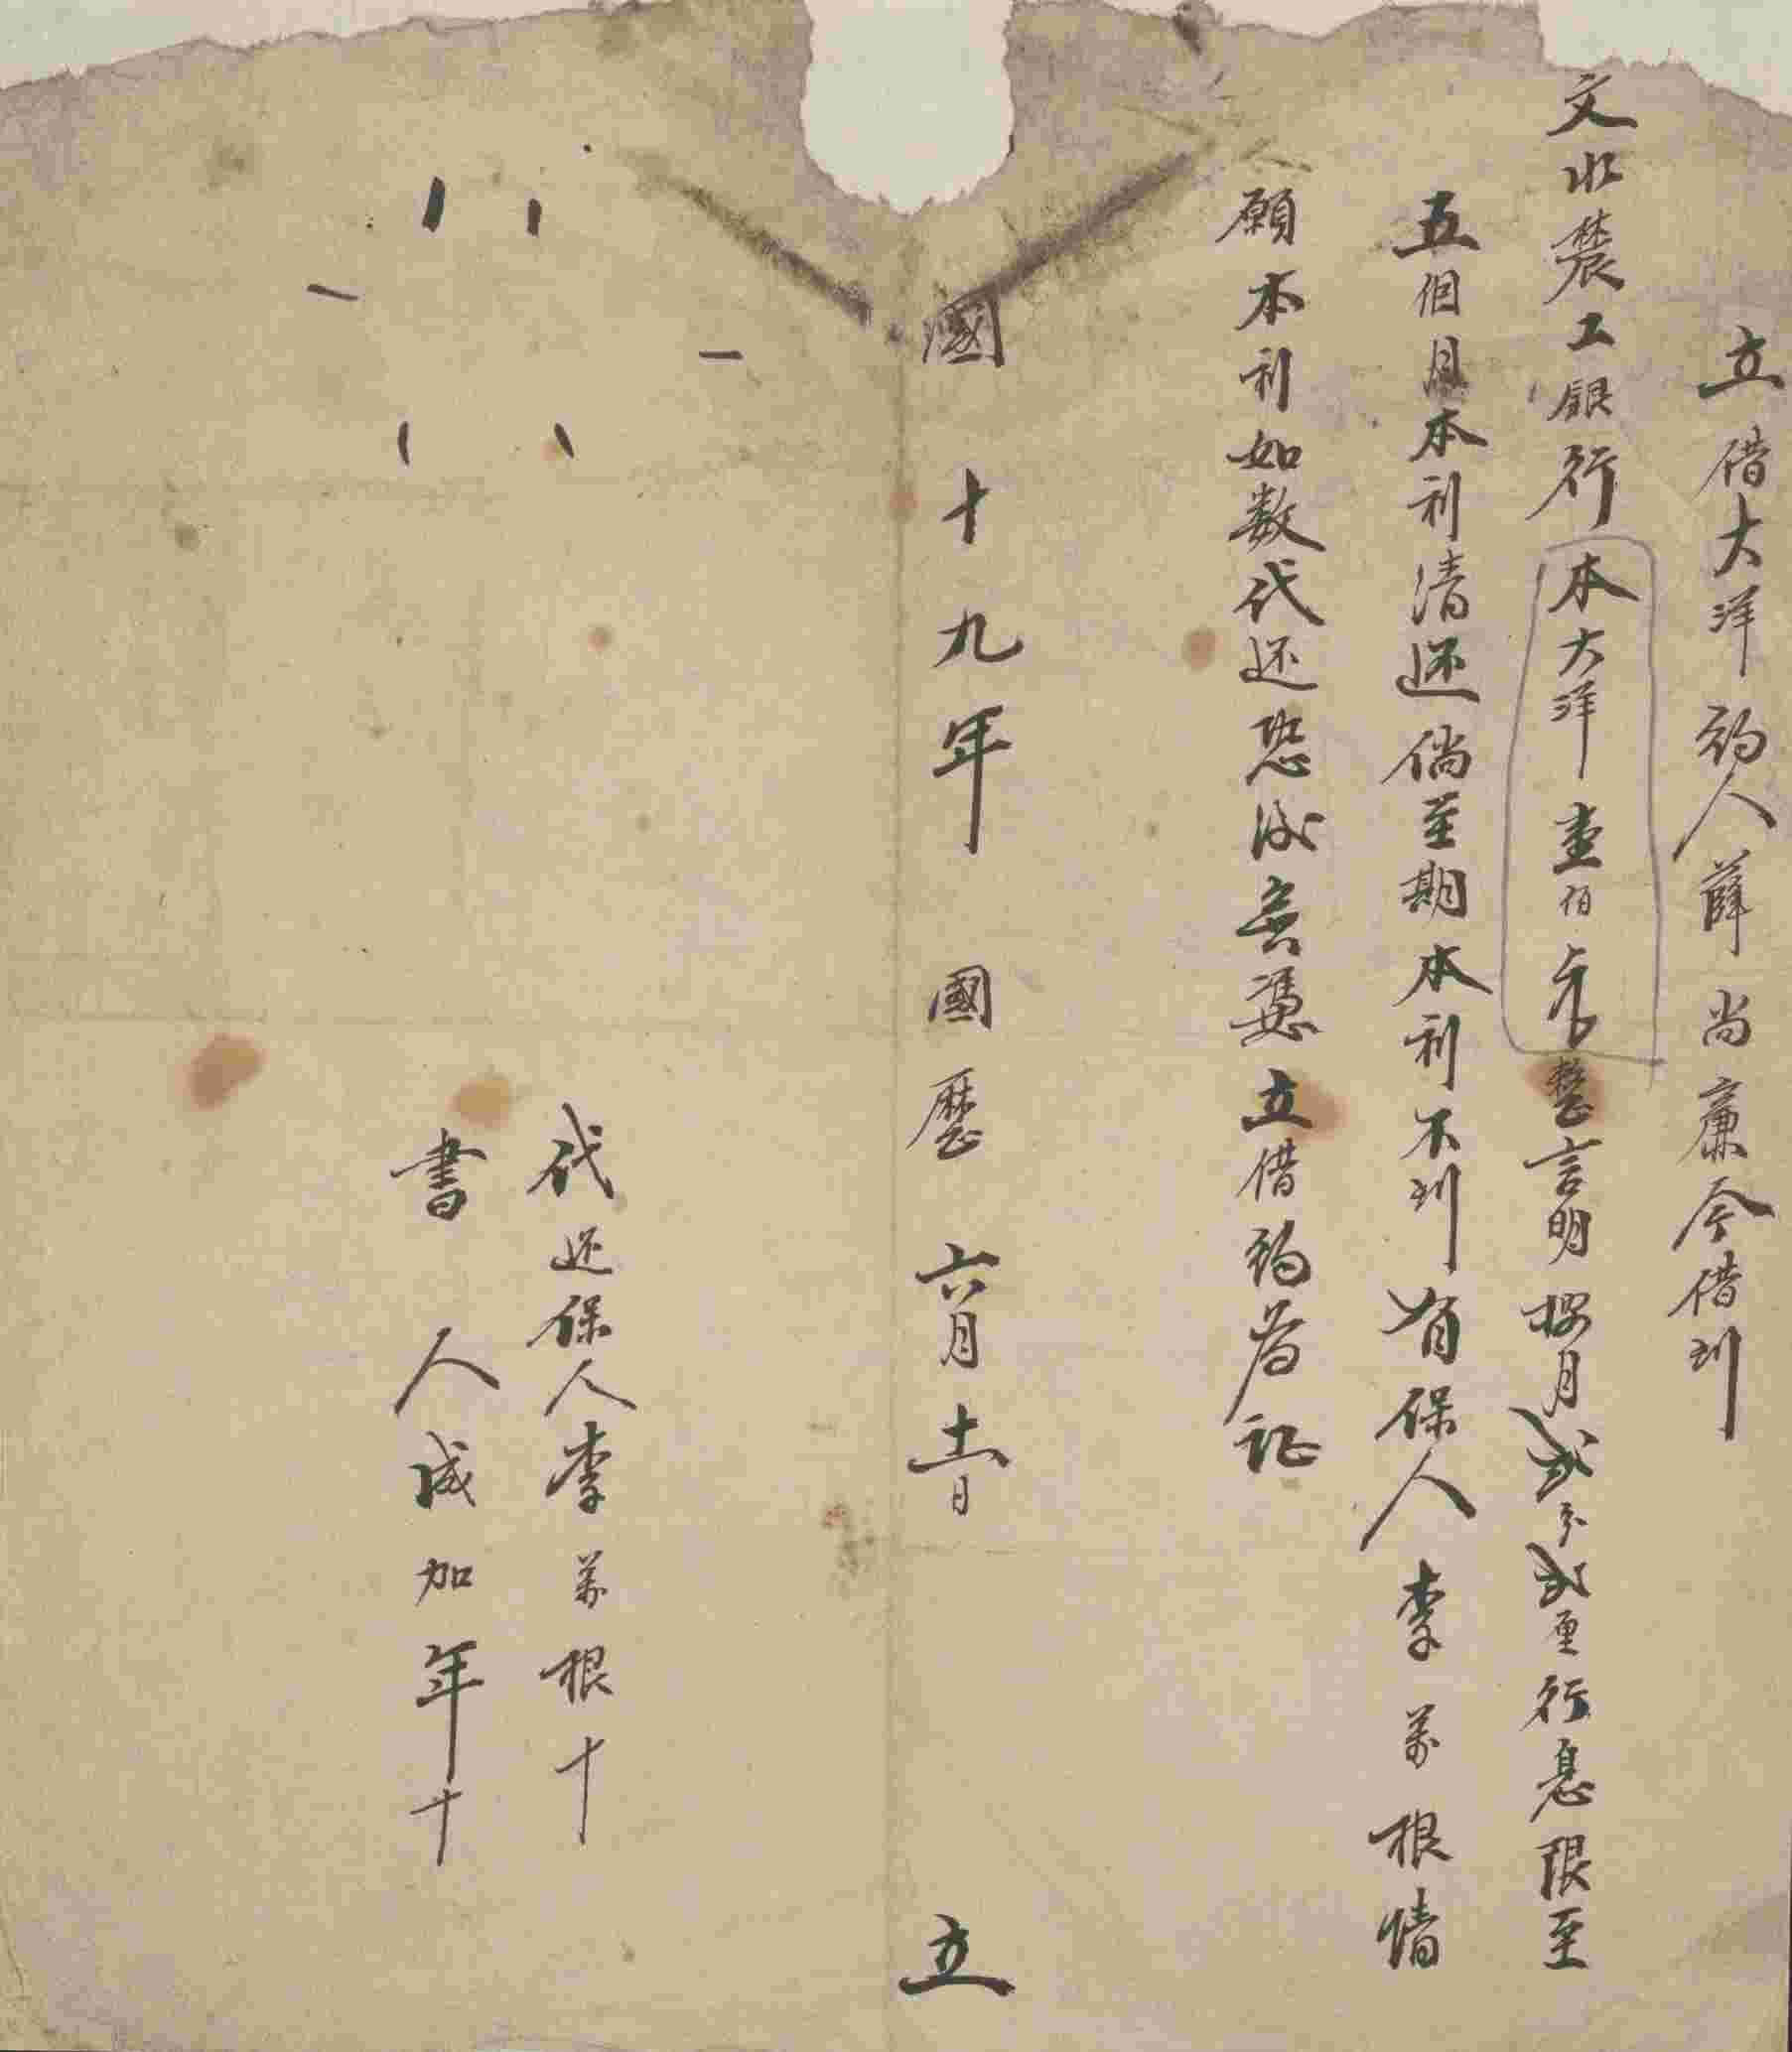 立借大洋約人薛尚廉今借到
文水農工銀行本大洋壹佰元整言明按月貳分貳厘行息限至
五個月本利清还倘至期本利不到有保人李萬根情
願本利如数代还恐後無憑立借約為証
國十九年 國歷六月十一日 立
代还保人李萬根十
書人成加年十